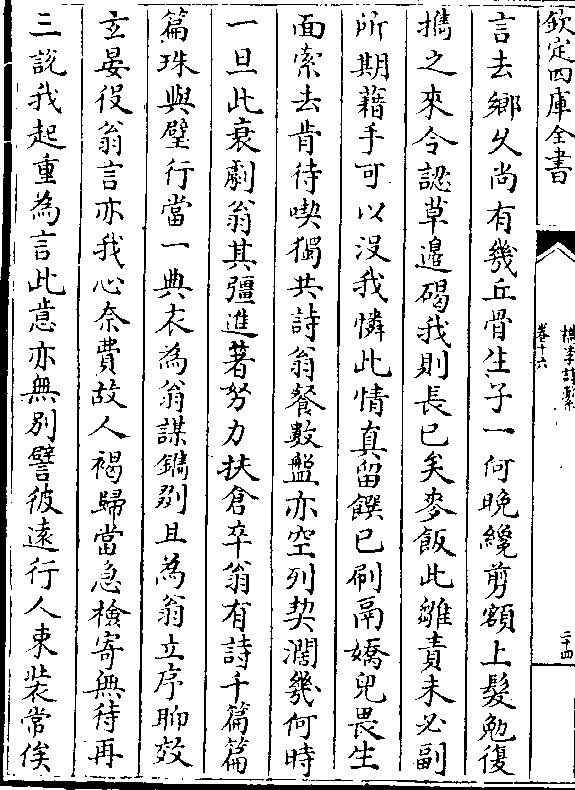 欽定四庫全書
檇李詩繫
卷十六
二十四
言去鄉久尚有幾丘骨生子一何晚纔剪額上髮勉復
攜之來令認草邉碣我則長已矣麥飯此雛責未必副
所期藉手可以沒我憐此情真留饌已刷鬲嬌兒畏生
面索去肯待喫獨共詩翁餐數盤亦空列契濶幾何時
一旦此衰劇翁其彊進著努力扶倉卒翁有詩千篇篇
篇珠與璧行當一典衣為翁謀鐫别且為翁立序聊效
玄晏役翁言亦我心奈費故人褐歸當急檢寄無待再
三說我起重為言此意亦無别譬彼遠行人束裝常俟